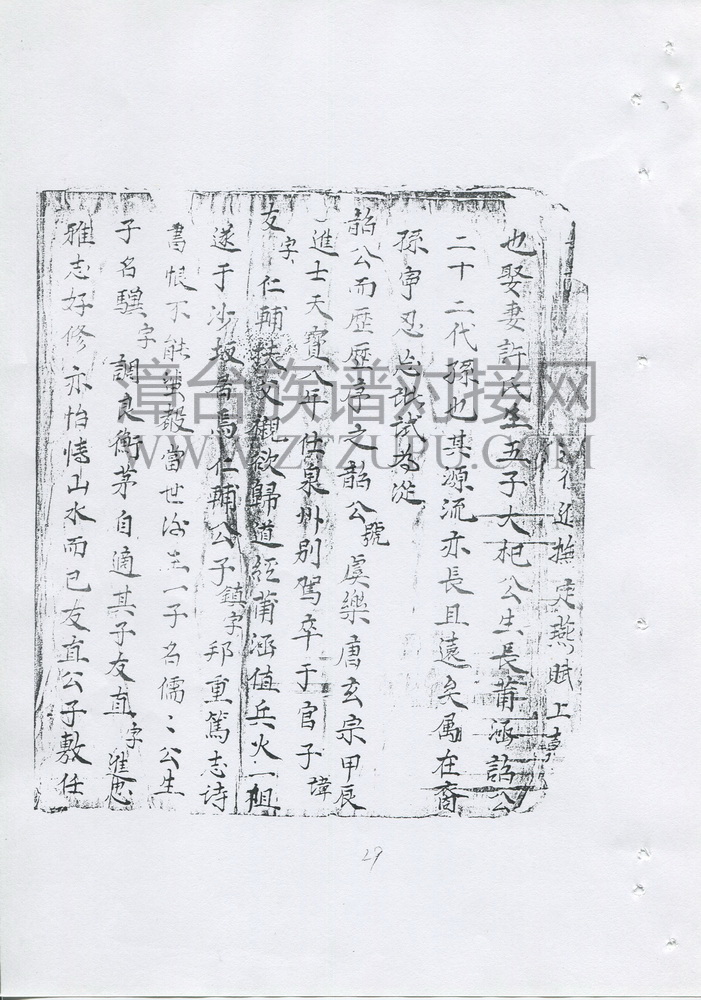 近撫定燕賦上
也娶妻許氏生五子大杞公生長莆涵韶公
二十二代孫也其源流亦長且遠矣属在裔
孫寧忍忘哉試為從
韶公而歷歷序之韶公號虞樂唐玄宗甲辰
進士天寶八年仕泉州别駕卒于官子諱
友字仁輔扶父櫬欲歸道經莆涵值兵火一沮
遂于沙坂居焉仁輔公子鎮字邦重篤志詩
書恨不能蜚蔜當世後生一子名儒〻公生
子名驥字調良衡茅自適其子友直字進忠
雅志好修亦怡情山水而已友直公子敷任
29
章台族谱对接网
WWW.ZTZUPU.COM